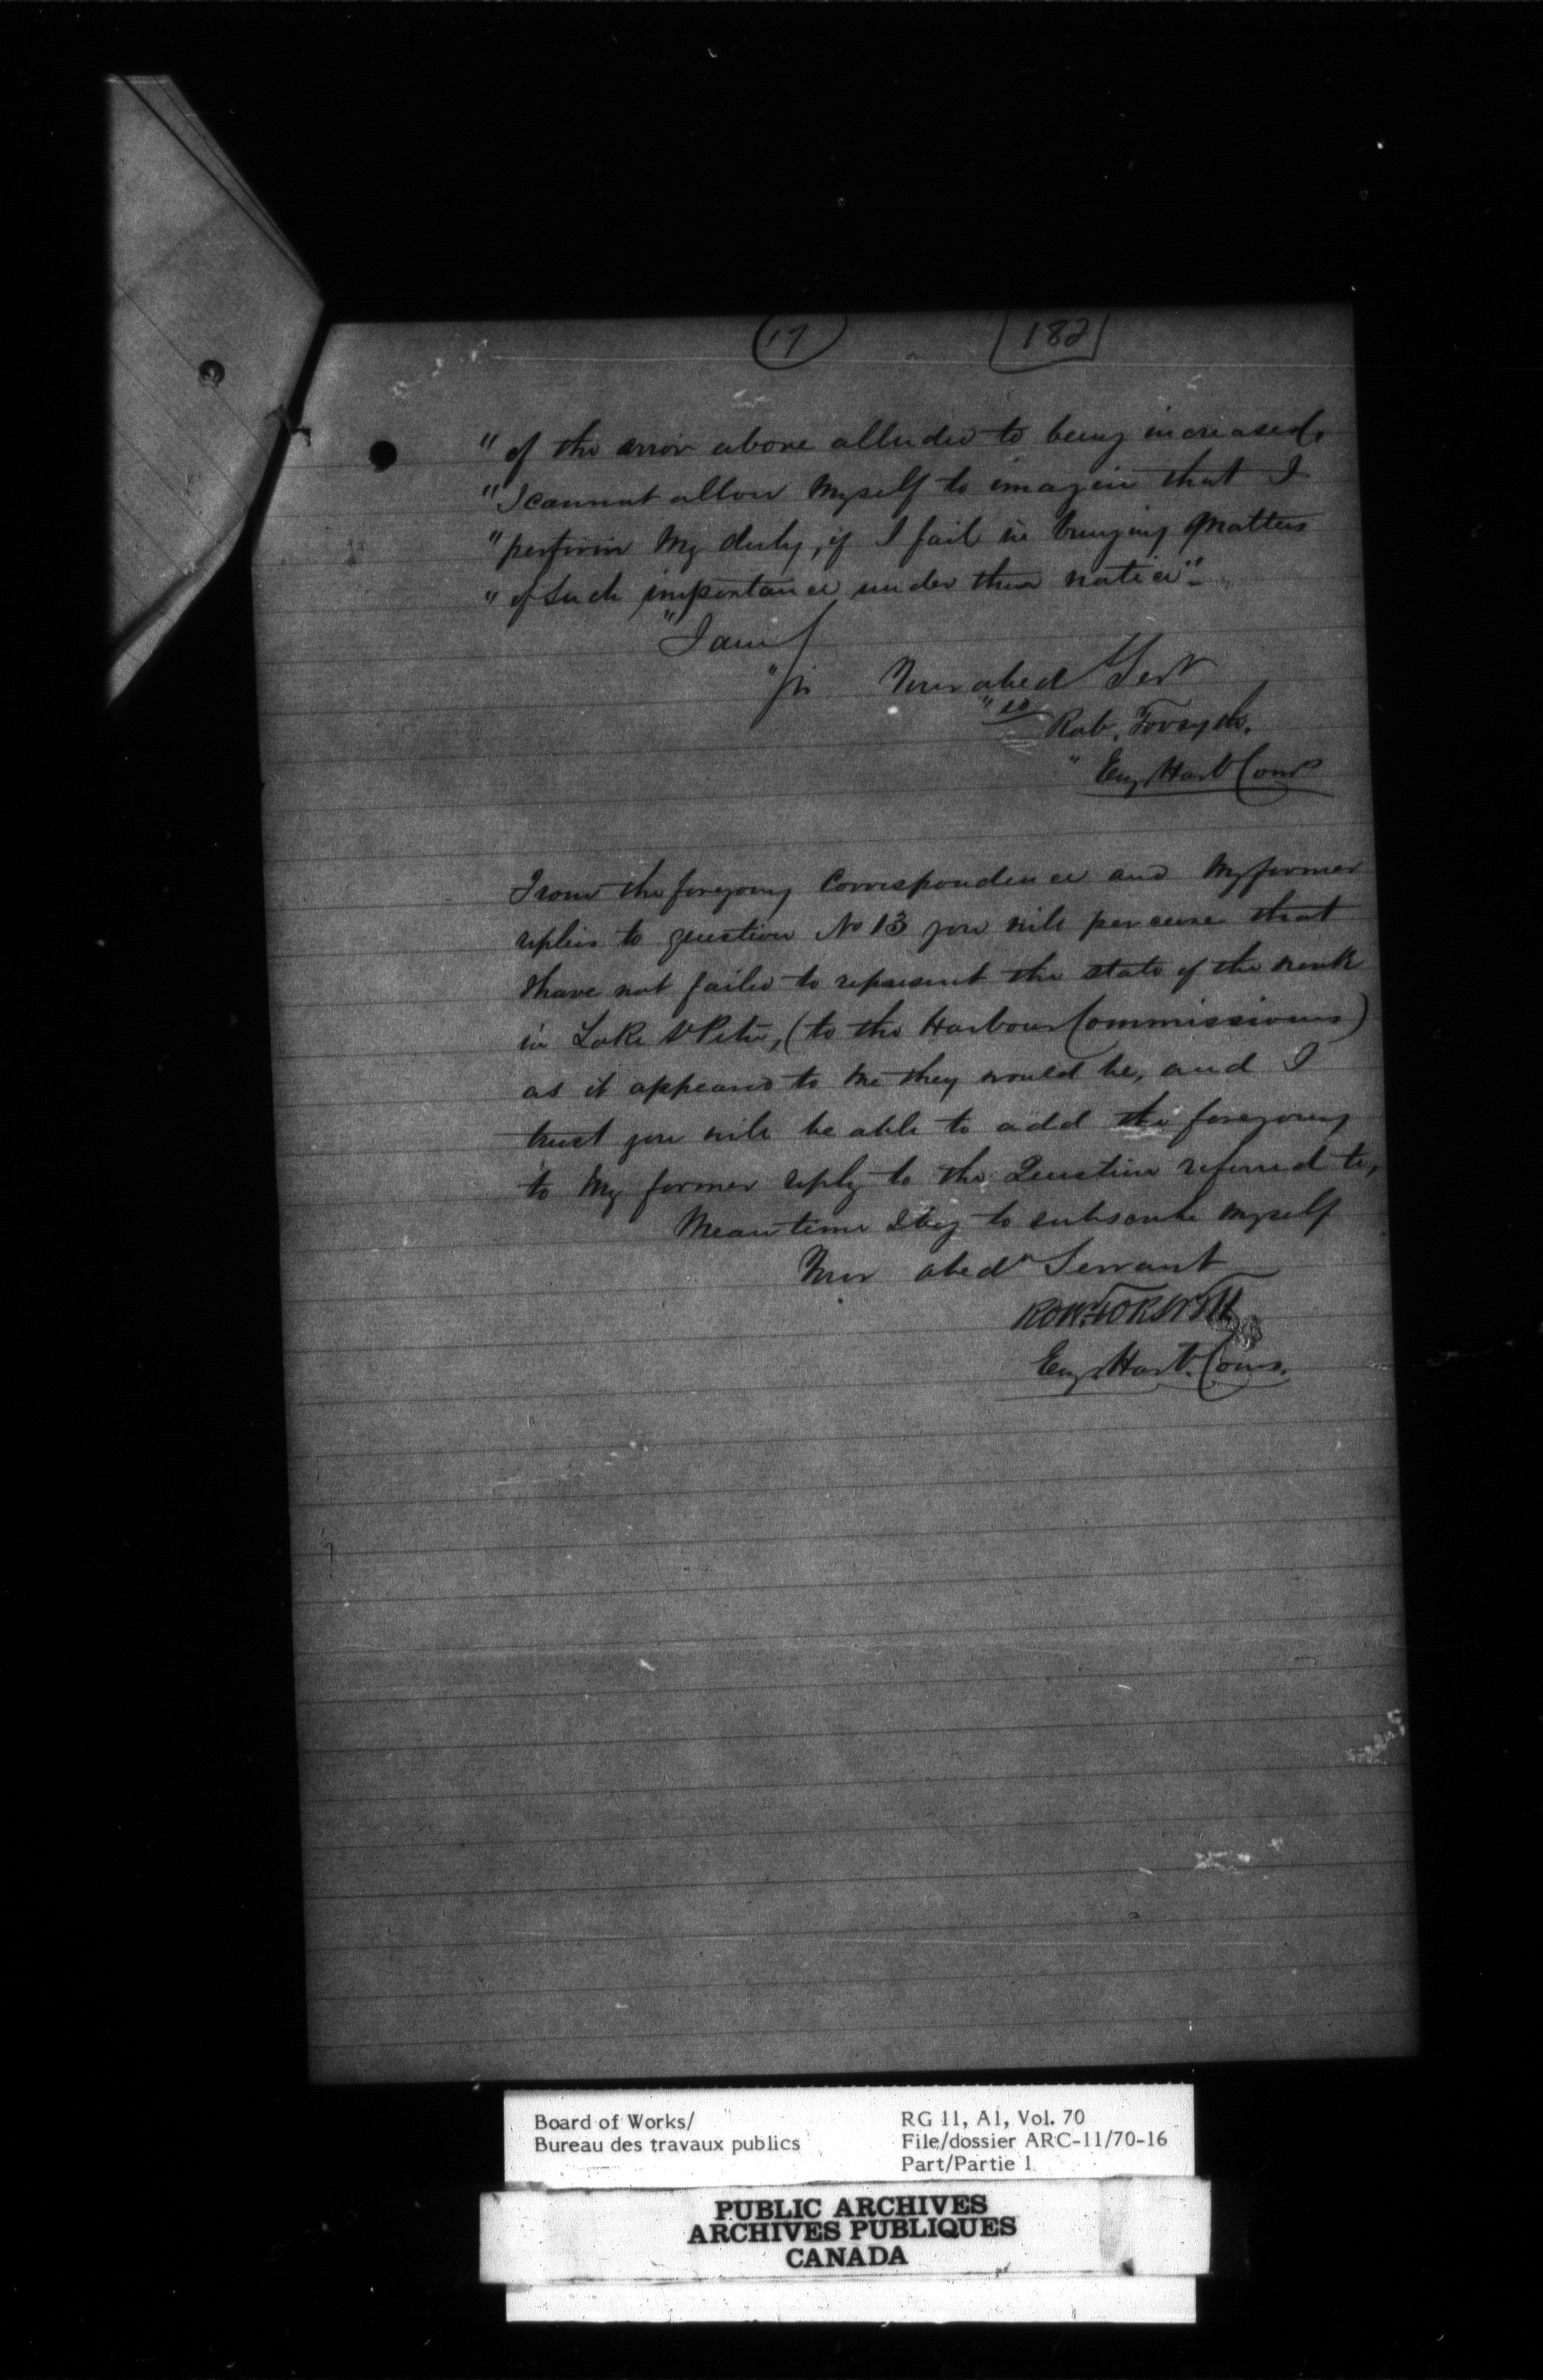 17 182
" of the error above alluded to being increased,
" I cannot allow Myself to imagine that I
" perform My duty, if I fail in bringing Matters
" of Such importance under their notice"
" I am
" Your obed Servt
" Rob. Forsyth.
" Eng Harb Coms
From the foregoing Correspondence and My former
replies to question No 13 you will perceive that
I have not failed to represent the state of the work
in Lake St Peter, (to the Harbour Commissioners)
as it appeared to me they would be, and I
trust you will be able to add the foregoing
to My former reply to the Question referred to,
Meantime I beg to subscribe Myself
Your obedt Servant
ROBT FORSYTH
Eng. Harb. Coms.
Board of Works/
Bureau des travaux publics
RG 11, A1, Vol. 70
File/dossier ARC-11/70-16
Part/Partie 1
PUBLIC ARCHIVES
ARCHIVES PUBLIQUES
CANADA